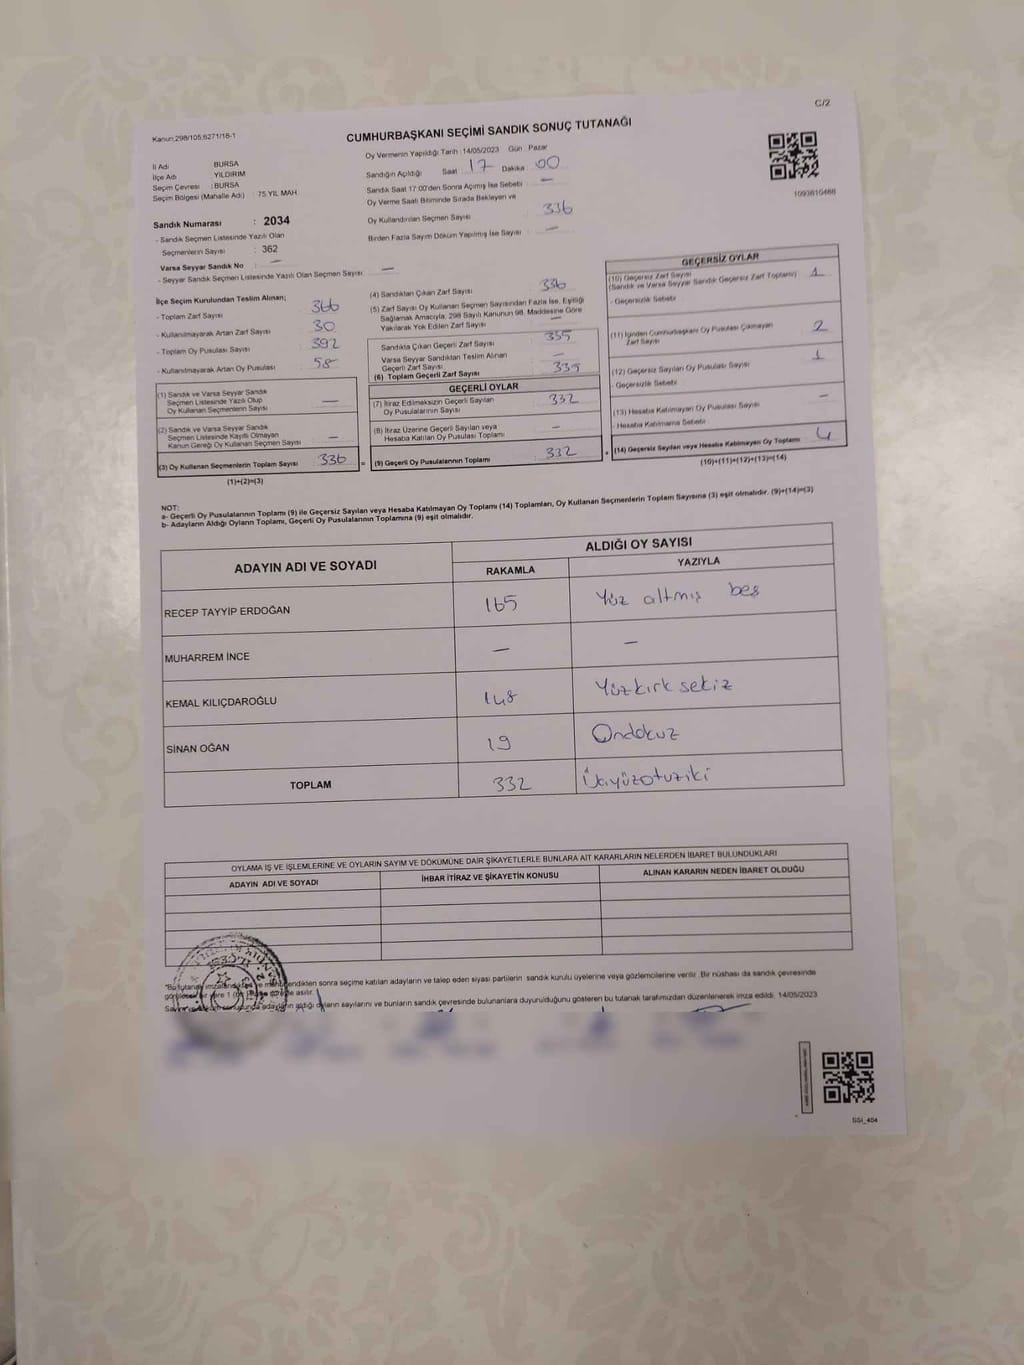 C/2
Kanun,298/105,6271/18-1
CUMHURBAŞKANI SEÇİMİ SANDIK SONUÇ TUTANAĞI
İl Adı BURSA
İlçe Adı YILDIRIM
Seçim Çevresi : BURSA
Seçim Bölgesi (Mahalle Adı) : 75.YIL MAH.
Oy Vermenin Yapıldığı Tarih :14/05/2023 Gün Pazar
Sandığın Açıldığı Saat 17 Dakika 00
Sandık Saat 17:00'den Sonra Açımış İse Sebebi —
Oy Verme Saati Bitiminde Sırada Bekleyen ve
Oy Kullandırılan Seçmen Sayısı 336
Birden Fazla Sayım Döküm Yapılmış İse Sayısı —
1093810488
Sandık Numarası : 2034
- Sandık Seçmen Listesinde Yazılı Olan
Seçmenlerin Sayısı : 362
Varsa Seyyar Sandık No —
- Seyyar Sandık Seçmen Listesinde Yazılı Olan Seçmen Sayısı —
İlçe Seçim Kurulundan Teslim Alınan;
- Toplam Zarf Sayısı 366
- Kullanılmayarak Artan Zarf Sayısı 30
- Toplam Oy Pusulası Sayısı 392
- Kullanılmayarak Artan Oy Pusulası 58
(1) Sandık ve Varsa Seyyar Sandık
Seçmen Listesinde Yazılı Olup
Oy Kullanan Seçmenlerin Sayısı —
(2) Sandık ve Varsa Seyyar Sandık
Seçmen Listesinde Kayıtlı Olmayan
Kanun Gereği Oy Kullanan Seçmen Sayısı —
(3) Oy Kullanan Seçmenlerin Toplam Sayısı 336
(1)+(2)=(3)
(4) Sandıktan Çıkan Zarf Sayısı 336
(5) Zarf Sayısı Oy Kullanan Seçmen Sayısından Fazla İse, Eşitliği
Sağlamak Amacıyla, 298 Sayılı Kanunun 98. Maddesine Göre
Yakılarak Yok Edilen Zarf Sayısı —
Sandıkta Çıkan Geçerli Zarf Sayısı 335
Varsa Seyyar Sandıktan Teslim Alınan
Geçerli Zarf Sayısı —
(6) Toplam Geçerli Zarf Sayısı 335
GEÇERLİ OYLAR
(7) İtiraz Edilmeksizin Geçerli Sayılan
Oy Pusulalarının Sayısı 332
(8) İtiraz Üzerine Geçerli Sayılan veya
Hesaba Katılan Oy Pusulası Toplamı —
(9) Geçerli Oy Pusulalarının Toplamı 332
GEÇERSİZ OYLAR
(10) Geçersiz Zarf Sayısı
(Sandık ve Varsa Seyyar Sandık Geçersiz Zarf Toplamı) 1
- Geçersizlik Sebebi
(11) İçinden Cumhurbaşkanı Oy Pusulası Çıkmayan
Zarf Sayısı 2
(12) Geçersiz Sayılan Oy Pusulası Sayısı 1
- Geçersizlik Sebebi
(13) Hesaba Katılmayan Oy Pusulası Sayısı —
- Hesaba Katılmama Sebebi
(14) Geçersiz Sayılan veya Hesaba Katılmayan Oy Toplamı 4
(10)+(11)+(12)+(13)=(14)
NOT:
a- Geçerli Oy Pusulalarının Toplamı (9) ile Geçersiz Sayılan veya Hesaba Katılmayan Oy Toplamı (14) Toplamları, Oy Kullanan Seçmenlerin Toplam Sayısına (3) eşit olmalıdır. (9)+(14)=(3)
b- Adayların Aldığı Oyların Toplamı, Geçerli Oy Pusulalarının Toplamına (9) eşit olmalıdır.
ADAYIN ADI VE SOYADI
ALDIĞI OY SAYISI
RAKAMLA YAZIYLA
RECEP TAYYİP ERDOĞAN 165 Yüz altmış beş
MUHARREM İNCE — —
KEMAL KILIÇDAROĞLU 148 Yüzkırk sekiz
SİNAN OĞAN 19 Ondokuz
TOPLAM 332 Üçyüzotuziki
OYLAMA İŞ VE İŞLEMLERİNE VE OYLARIN SAYIM VE DÖKÜMÜNE DAİR ŞİKAYETLERLE BUNLARA AİT KARARLARIN NELERDEN İBARET BULUNDUKLARI
ADAYIN ADI VE SOYADI İHBAR İTİRAZ VE ŞİKAYETİN KONUSU ALINAN KARARIN NEDEN İBARET OLDUĞU
sonra seçime katılan adayların ve talep eden siyasi partilerin sandık kurulu üyelerine veya gözlemcilerine verilir. Bir nüshası da sandık çevresinde
asılır.
sayılarını ve bunların sandık çevresinde bulunanlara duyurulduğunu gösteren bu tutanak tarafımızdan düzenlenerek imza edildi. 14/05/2023